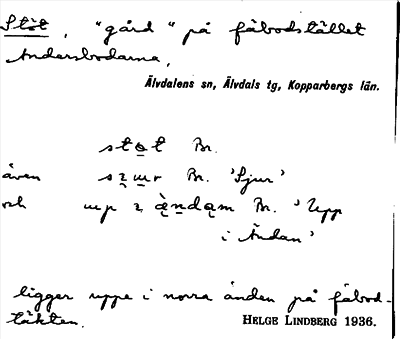 Stöt, "gård" på fäbodstället
Andersbodarna,
Älvdalens sn, Älvdals tg, Kopparbergs län.
Br.
även Br. 'Sjur'
och up Br. 'Upp
i Ändan'
ligger uppe i norra änden på fäbod-
täkten.
HELGE LINDBERG 1936.